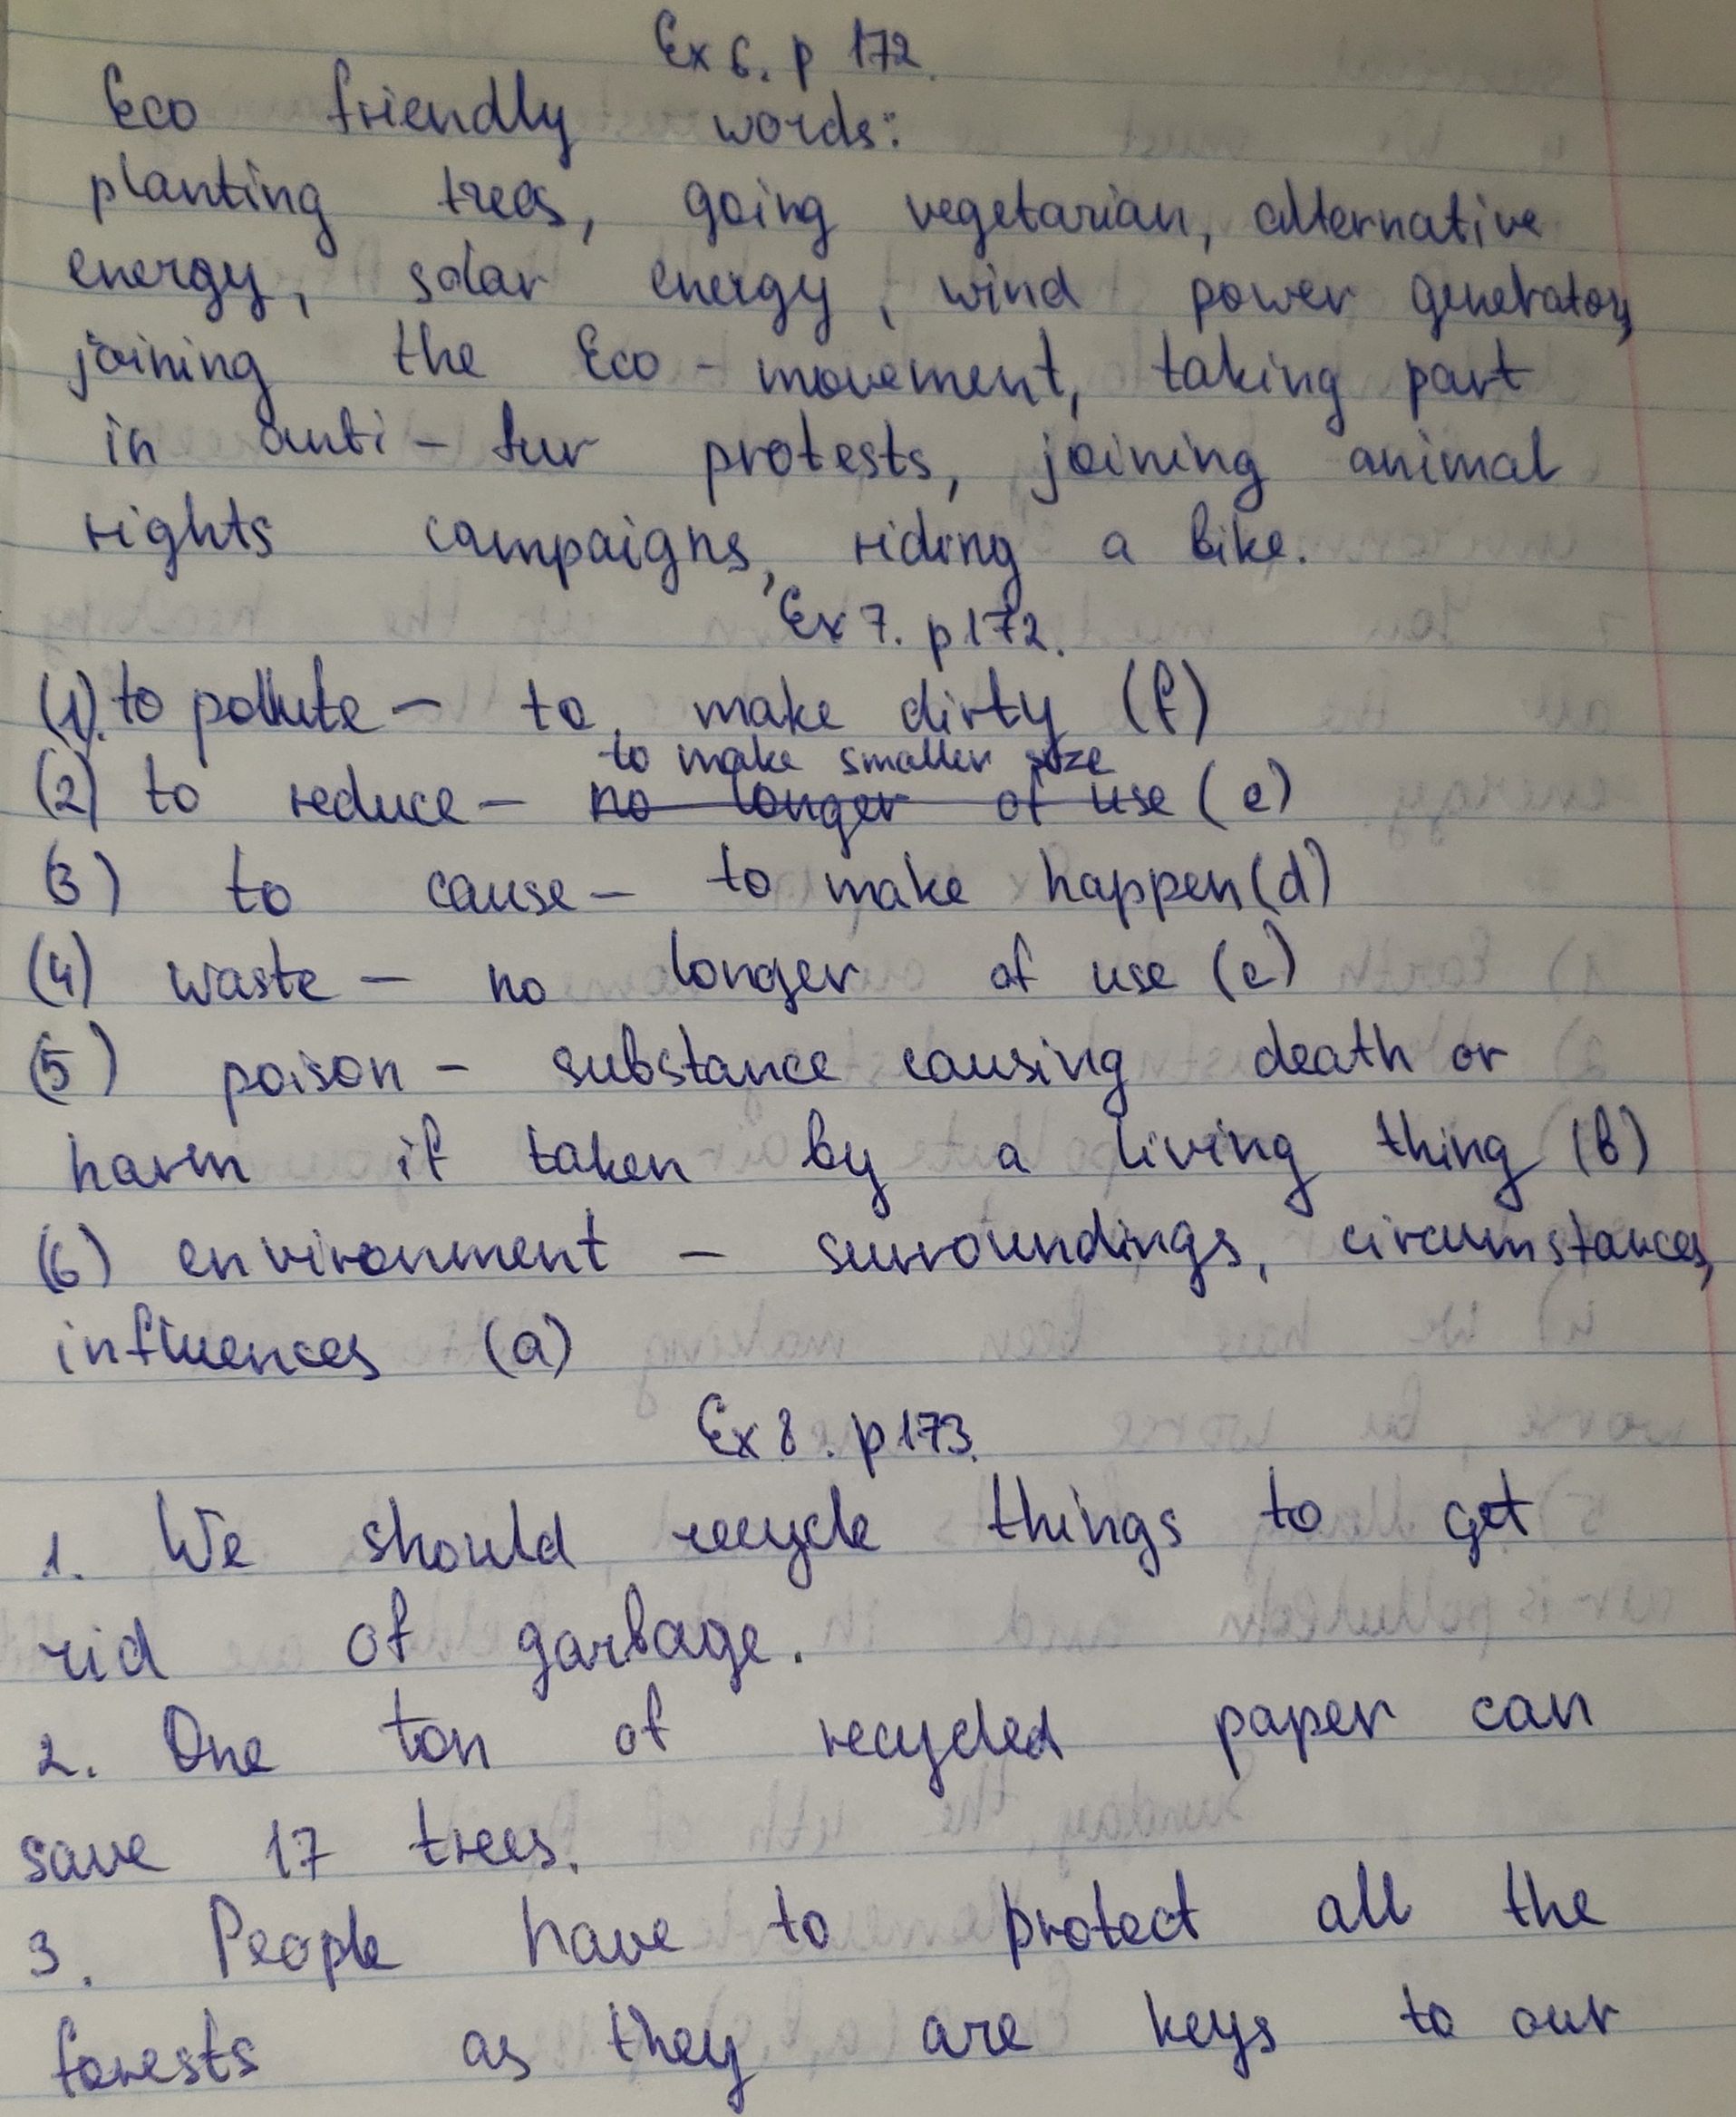 Ex 6. p 172.
Eco friendly words:
planting trees, going vegetarian, alternative
energy, solar energy, wind power generator,
joining the Eco - movement, taking part
in anti - fur protests, joining animal
rights campaigns, riding a bike.
Ex 7. p 172.
(1). to pollute - to make dirty (f)
to make smaller size
(2) to reduce - no longer of use (e)
(3) to cause - to make happen (d)
(4) waste - no longer of use (c)
(5) poison - substance causing death or
harm if taken by a living thing (b)
(6) environment - surroundings, circumstances,
influences (a)
Ex 8. p 173.
1. We should recycle things to get
rid of garbage.
2. One ton of recycled paper can
save 17 trees.
3. People have to protect all the
forests as they are keys to our